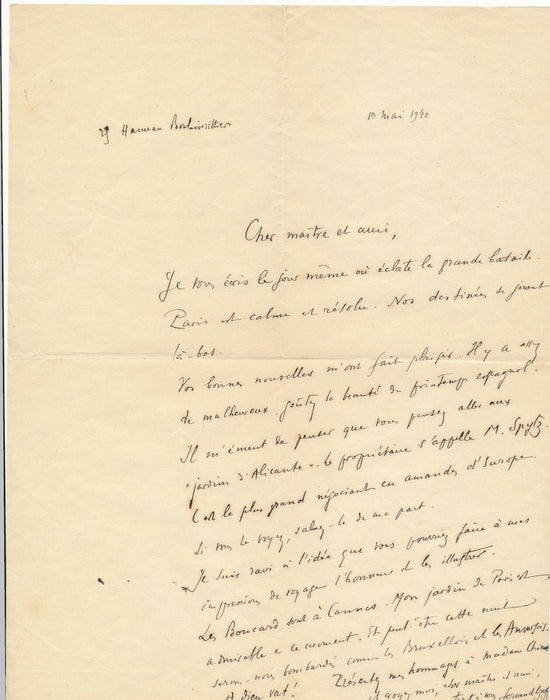 29 Hameau Boulainvilliers
10 mai 1940
Cher maître et ami,
Je vous écris le jour même où éclate la grande bataille.
Paris est calme et résolu. Nos destinées se jouent
là-bas.
Vos bonnes nouvelles m'ont fait plaisir. Il y a assez
de malheureux. Goûtez la beauté du printemps espagnol.
Il m'émeut de penser que vous pensez aller aux
"jardins d'Alicante". Le propriétaire s'appelle M.
C'est le plus grand négociant en amandes d'Europe.
Si vous le voyez, saluez-le de ma part.
Je suis ravi à l'idée que vous pourriez faire à mes
impressions de voyage l'honneur de les illustrer.
Les Boucard sont à Cannes. Mon jardin de Paris est
admirable en ce moment. Et peut-être cette nuit
serons-nous bombardés comme les Bruxellois et les Anversois.
A Dieu vat! Présentez mes hommages à madame
et croyez moi, cher maître et ami,